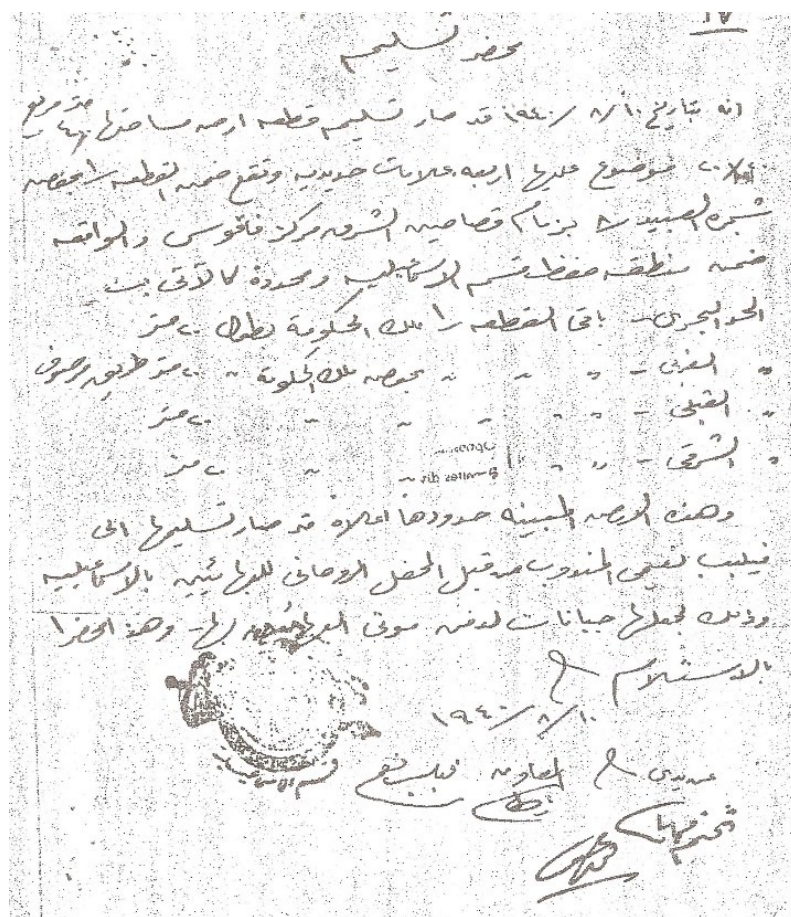 ١٧
محضر تسليم
انه بتاريخ ١٠/٨/١٩٤٠ قد صار تسليم قطعه ارض مساحتها ٤٠٠ متر مربع
٢٠/٢٠ موضوع عليها اربعه علامات حديديه وتقع ضمن القطعه ١ بحوض
شجرة العبيد ٨ بزمام قصاصين الشرق مركز فاقوس والواقعه
ضمن منطقه محفظه قسم الاسماعيليه ومحدودة كالآتي
الحد البحرى - باقى القطعه ١ ملك الحكومة بطول ٢٠ متر
" الغربى - " " " بحوضه ملك الحكومة " ٢٠ متر طريق مرصوف
" القبلى - " " " " " ٢٠ متر
" الشرقى - " " " " ٢٠ متر
وهذه الارض المبينه حدودها اعلاه قد صار تسليمها الى
فيليب نعيمى المندوب من قبل المحفل الروحانى للبهائيين بالاسماعيليه
وذلك لجعلها جبانات لدفن موتى البهائيين بها - وهذا محضرا
بالاستلام
١٠/٨/١٩٤٠
المعاون فيليب نعيمى
قسم الاسماعيليه